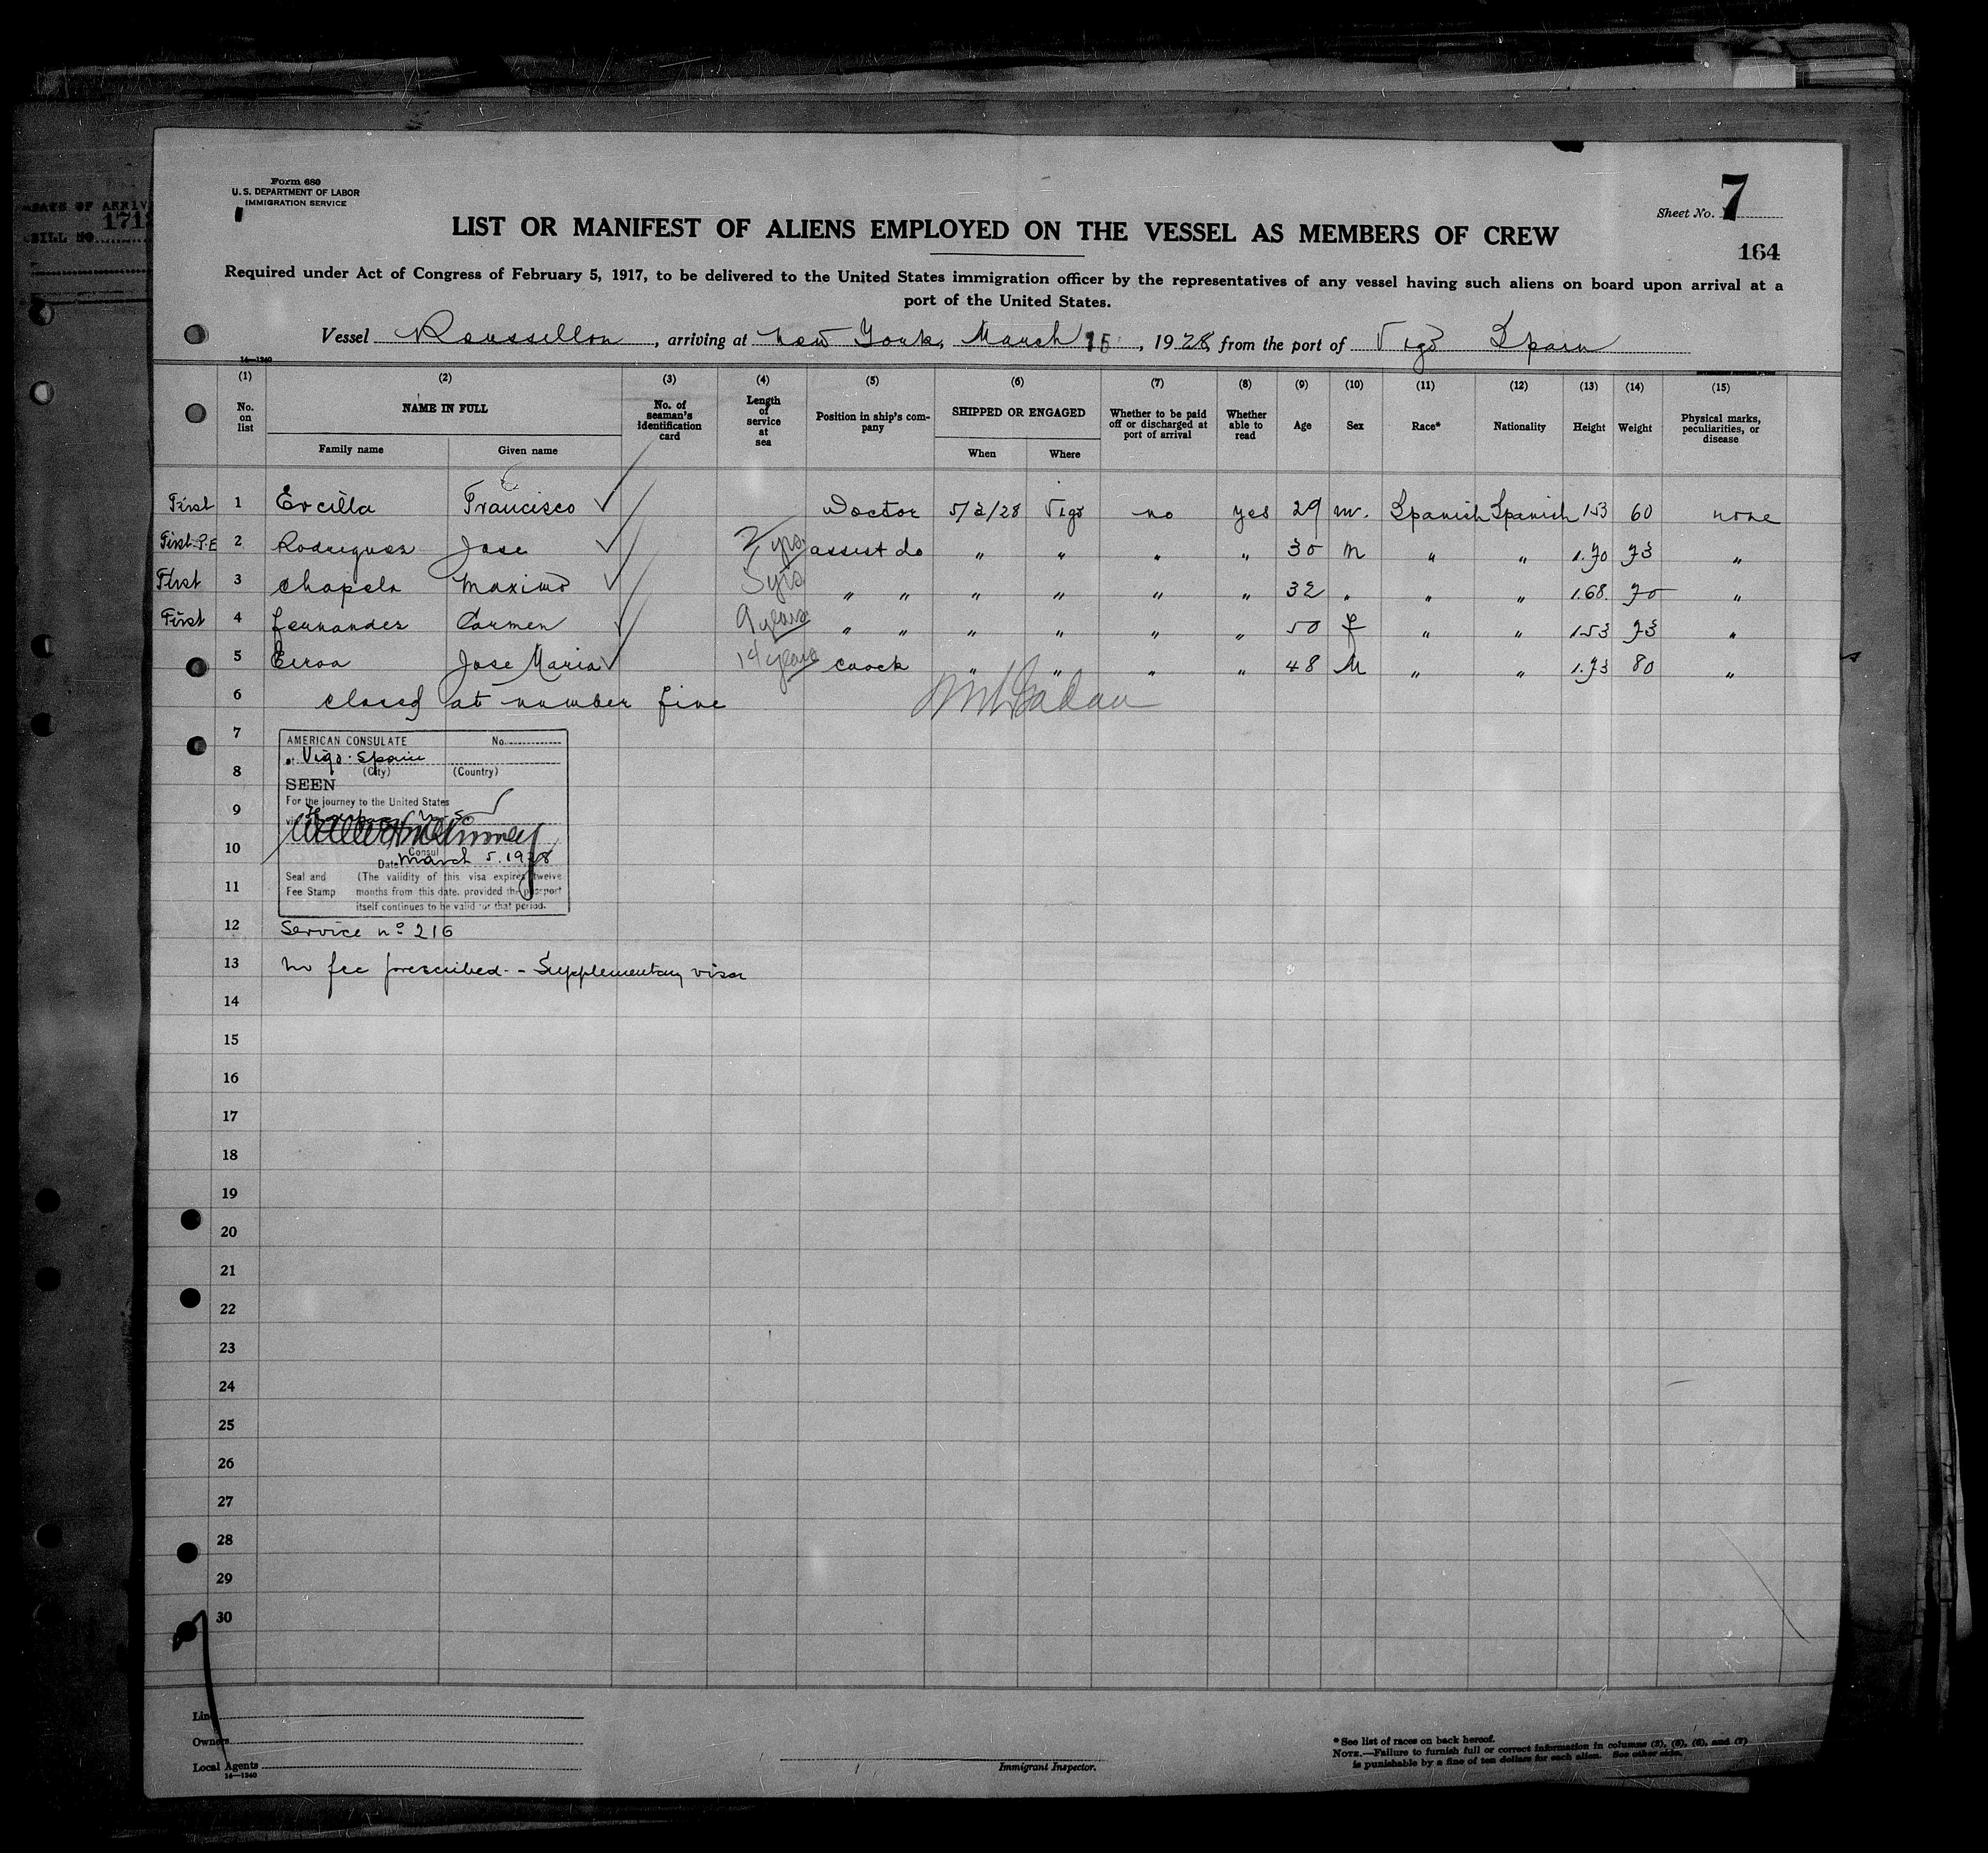 DATE OF ARRIV
1719
BILL NO
Form 680
U. S. DEPARTMENT OF LABOR
IMMIGRATION SERVICE
Sheet No. 7
164
LIST OR MANIFEST OF ALIENS EMPLOYED ON THE VESSEL AS MEMBERS OF CREW
Required under Act of Congress of February 5, 1917, to be delivered to the United States immigration officer by the representatives of any vessel having such aliens on board upon arrival at a
port of the United States.
Vessel Roussillon, arriving at New York, March 15, 1928, from the port of Vigo Spain
14—1240
(1) (2) (3) (4) (5) (6) (7) (8) (9) (10) (11) (12) (13) (14) (15)
No. on list NAME IN FULL No. of seaman's identification card Length of service at sea Position in ship's company SHIPPED OR ENGAGED Whether to be paid off or discharged at port of arrival Whether able to read Age Sex Race* Nationality Height Weight Physical marks, peculiarities, or disease
Family name Given name When Where
First 1 Ercilla Francisco ✓ Doctor 5/3/28 Vigo no yes 29 m. Spanish Spanish 153 60 none
First P.E 2 Rodriguez Jose ✓ 2 yrs assist do " " " " 30 m " " 1.70 73 "
First 3 Chapela Maximo ✓ 5 yrs " " " " " " 32 " " " 1.68. 70 "
First 4 fernandez Carmen ✓ 9 years " " " " " " 50 f " " 153 73 "
5 Eiroa Jose Maria ✓ 14 years coock " " " " 48 M " " 1.73 80 "
6 closed at number five
7
AMERICAN CONSULATE No.
at Vigo Spain
8
(City) (Country)
SEEN
For the journey to the United States
9
via
10
Consul
Date March 5. 1928
11
Seal and Fee Stamp (The validity of this visa expires twelve
months from this date. provided the passport
itself continues to be valid for that period.
12 Service nº 216
13 No fee prescribed - - Supplementary visa
14
15
16
17
18
19
20
21
22
23
24
25
26
27
28
29
30
Line
Owners
Local Agents
14—1240
Immigrant Inspector.
* See list of races on back hereof.
NOTE.—Failure to furnish full or correct information in columns (3), (5), (6), and (7)
is punishable by a fine of ten dollars for each alien. See other side.